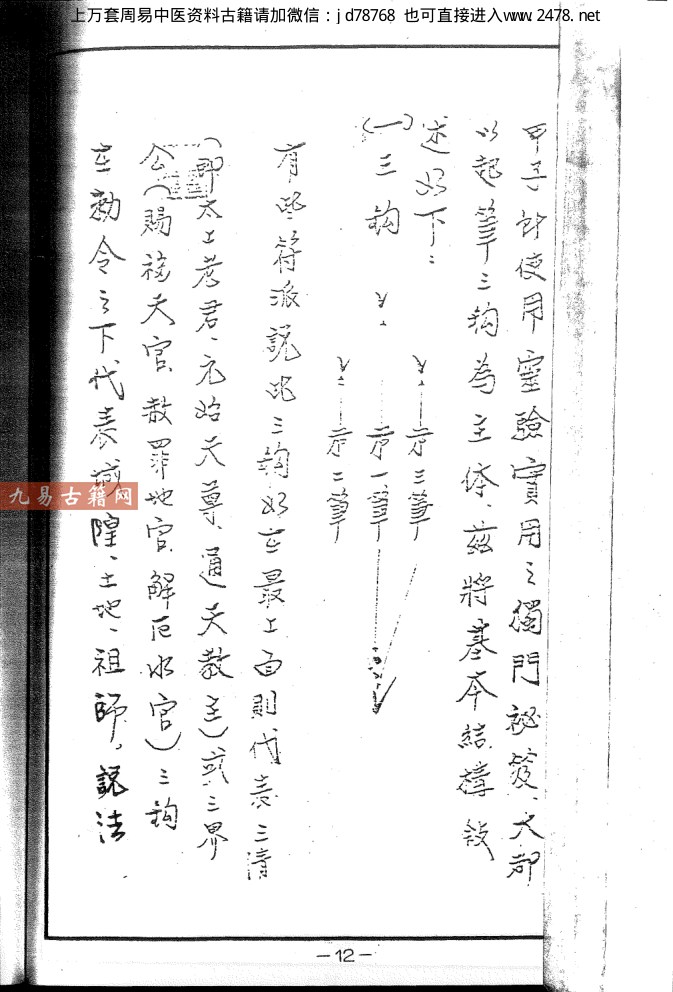 上万套周易中医资料古籍请加微信：jd78768 也可直接进入www.2478.net
甲子許使用靈驗實用之獨門祕笈、大都
以起筆三鈎為主体、茲將基本結構敍
述如下：
(一)三鈎
示三筆
示一筆
示二筆
有些符派說此三鈎如在最上面則代表三清
(即太上老君、元始天尊、通天教主)或三界
公(賜福天官、赦罪地官、解厄水官)三鈎
在勅令之下代表城隍、土地、祖師。說法
九易古籍网
－12－